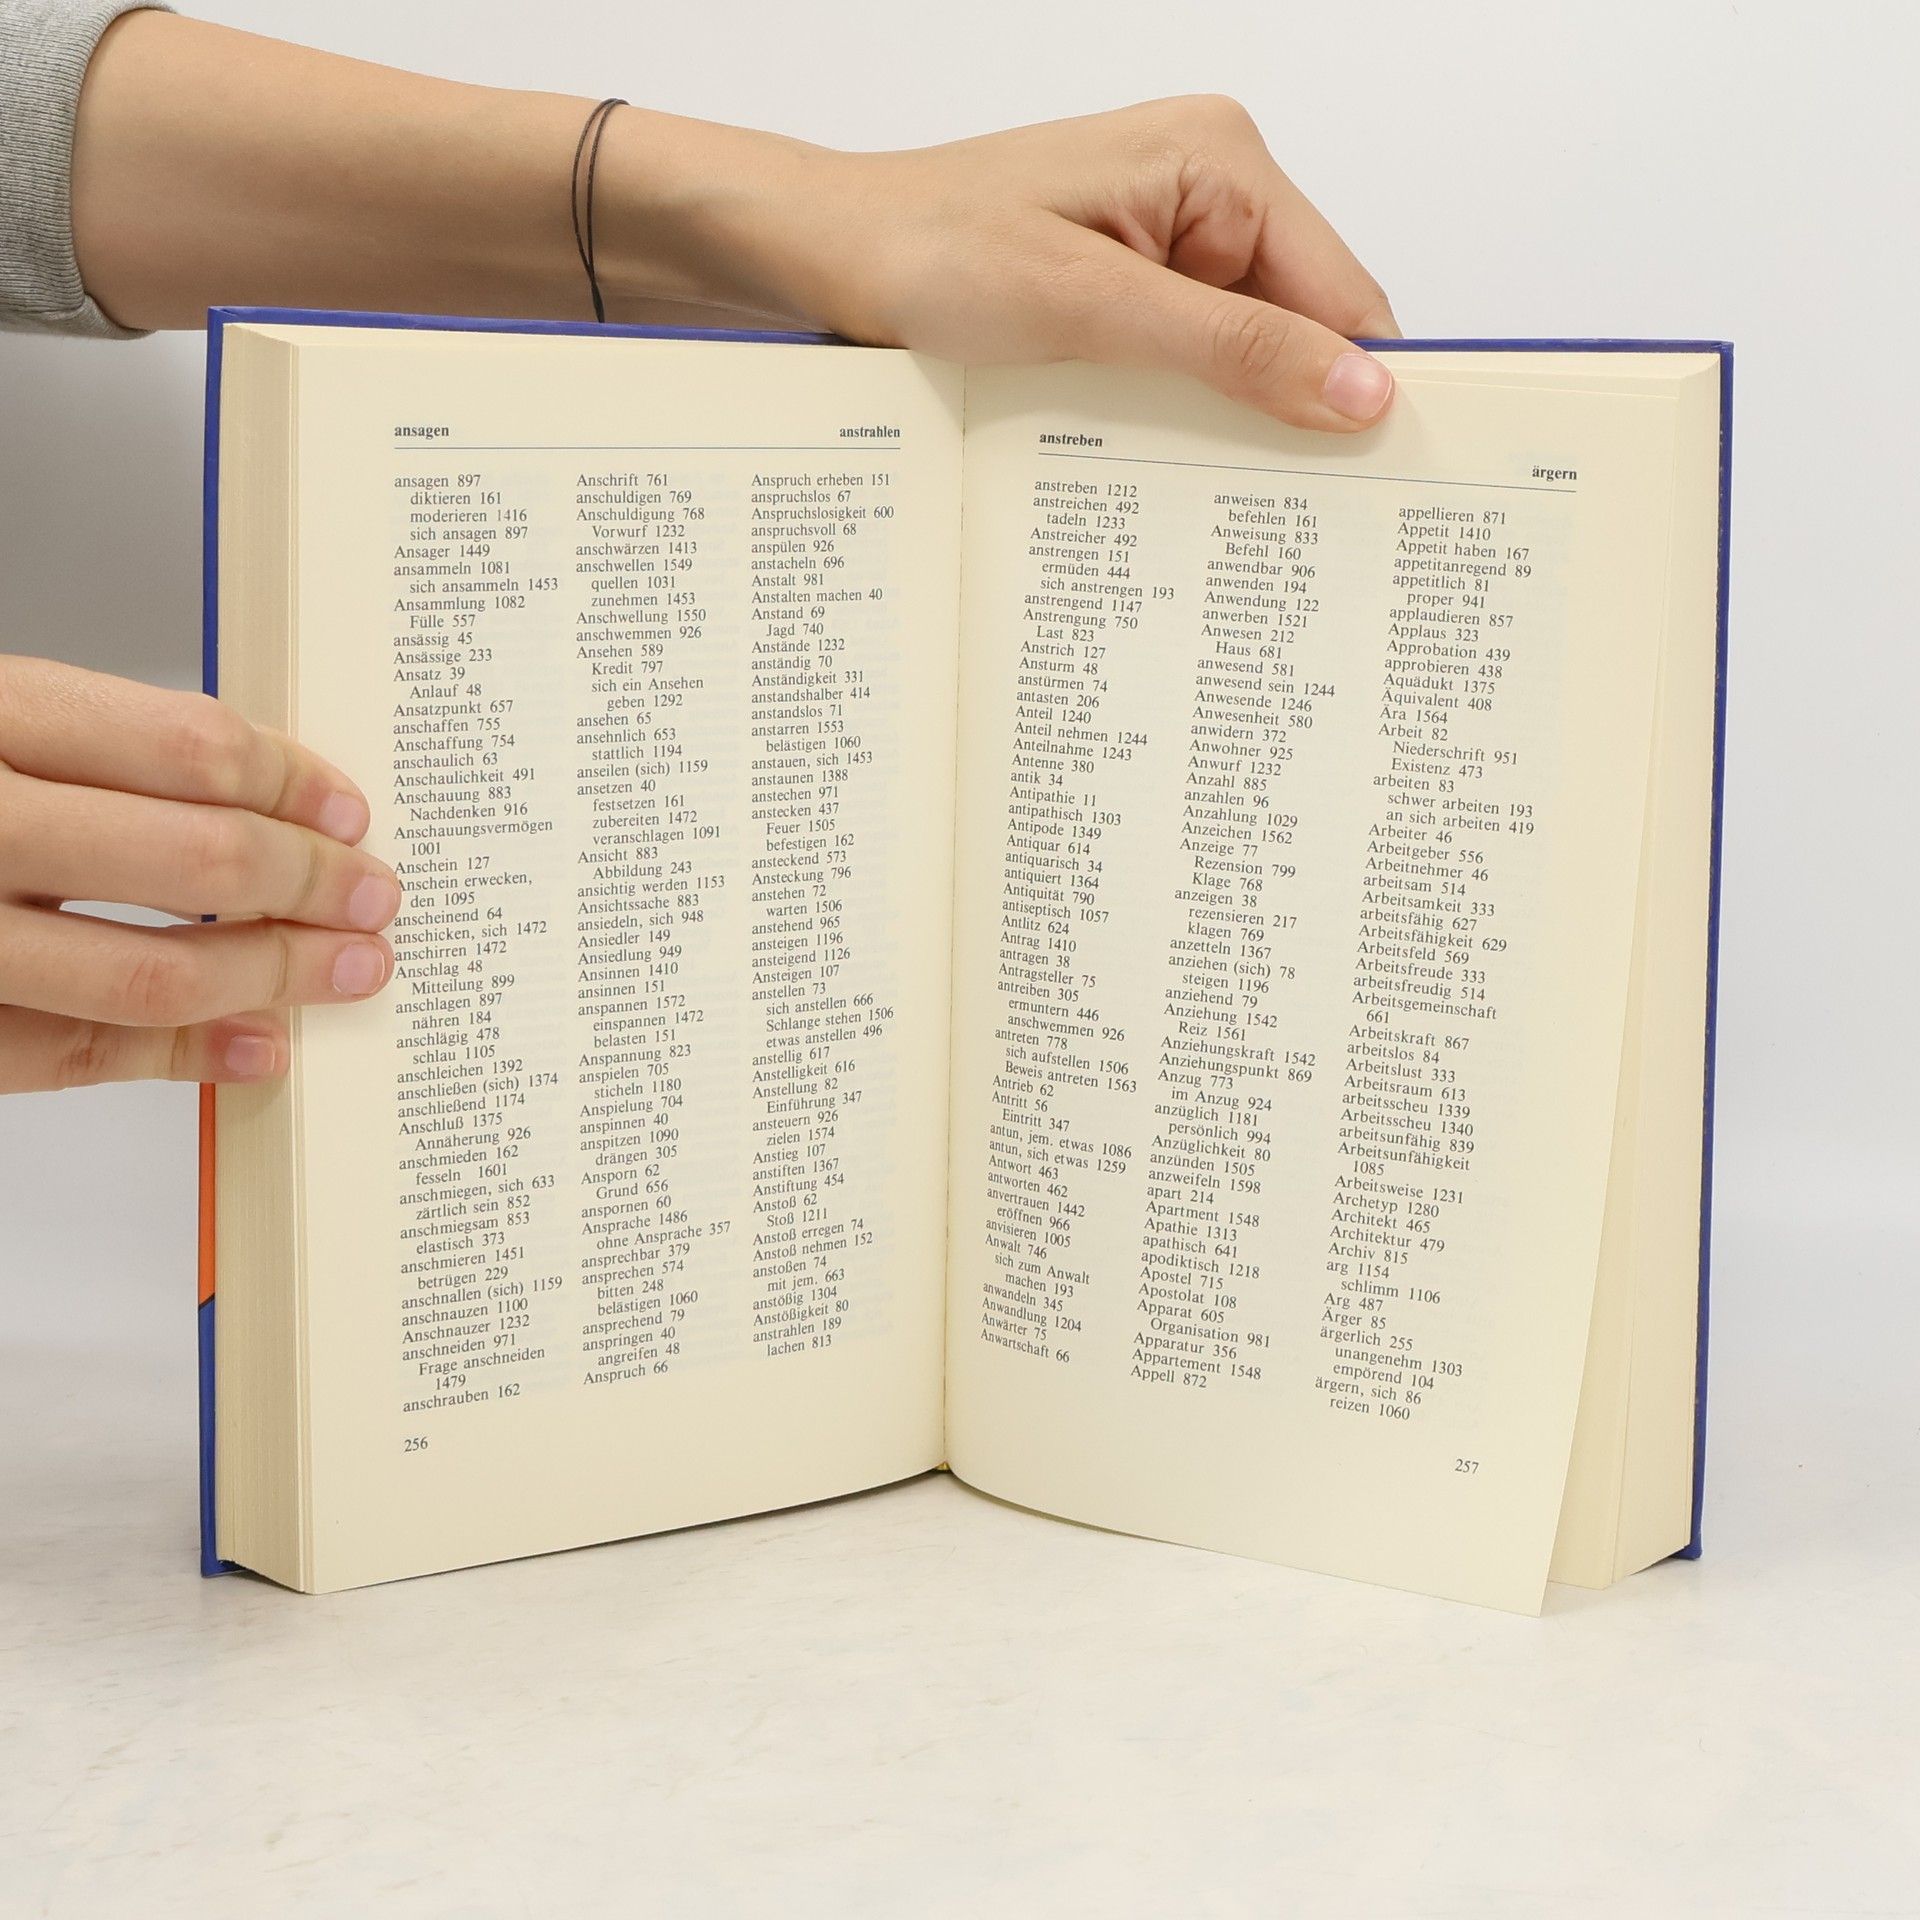 ansagen
anstrahlen
ansagen 897
diktieren 161
moderieren 1416
sich ansagen 897
Ansager 1449
ansammeln 1081
sich ansammeln 1453
Ansammlung 1082
Fülle 557
ansässig 45
Ansässige 233
Ansatz 39
Anlauf 48
Ansatzpunkt 657
anschaffen 755
Anschaffung 754
anschaulich 63
Anschaulichkeit 491
Anschauung 883
Nachdenken 916
Anschauungsvermögen
1001
Anschein 127
Anschein erwecken,
den 1095
anscheinend 64
anschicken, sich 1472
anschirren 1472
Anschlag 48
Mitteilung 899
anschlagen 897
nähren 184
anschlägig 478
schlau 1105
anschleichen 1392
anschließen (sich) 1374
anschließend 1174
Anschluß 1375
Annäherung 926
anschmieden 162
fesseln 1601
anschmiegen, sich 633
zärtlich sein 852
anschmiegsam 853
elastisch 373
anschmieren 1451
betrügen 229
anschnallen (sich) 1159
anschnauzen 1100
Anschnauzer 1232
anschneiden 971
Frage anschneiden
1479
anschrauben 162
Anschrift 761
anschuldigen 769
Anschuldigung 768
Vorwurf 1232
anschwärzen 1413
anschwellen 1549
quellen 1031
zunehmen 1453
Anschwellung 1550
anschwemmen 926
Ansehen 589
Kredit 797
sich ein Ansehen
geben 1292
ansehen 65
ansehnlich 653
stattlich 1194
anseilen (sich) 1159
ansetzen 40
festsetzen 161
zubereiten 1472
veranschlagen 1091
Ansicht 883
Abbildung 243
ansichtig werden 1153
Ansichtssache 883
ansiedeln, sich 948
Ansiedler 149
Ansiedlung 949
Ansinnen 1410
ansinnen 151
anspannen 1572
einspannen 1472
belasten 151
Anspannung 823
anspielen 705
sticheln 1180
Anspielung 704
anspinnen 40
anspitzen 1090
drängen 305
Ansporn 62
Grund 656
anspornen 60
Ansprache 1486
ohne Ansprache 357
ansprechbar 379
ansprechen 574
bitten 248
belästigen 1060
ansprechend 79
anspringen 40
angreifen 48
Anspruch 66
Anspruch erheben 151
anspruchslos 67
Anspruchslosigkeit 600
anspruchsvoll 68
anspülen 926
anstacheln 696
Anstalt 981
Anstalten machen 40
Anstand 69
Jagd 740
Anstände 1232
anständig 70
Anständigkeit 331
anstandshalber 414
anstandslos 71
anstarren 1553
belästigen 1060
anstauen, sich 1453
anstaunen 1388
anstechen 971
anstecken 437
Feuer 1505
befestigen 162
ansteckend 573
Ansteckung 796
anstehen 72
warten 1506
anstehend 965
ansteigen 1196
ansteigend 1126
Ansteigen 107
anstellen 73
sich anstellen 666
Schlange stehen 1506
etwas anstellen 496
anstellig 617
Anstelligkeit 616
Anstellung 82
Einführung 347
ansteuern 926
zielen 1574
Anstieg 107
anstiften 1367
Anstiftung 454
Anstoß 62
Stoß 1211
Anstoß erregen 74
Anstoß nehmen 152
anstoßen 74
mit jem. 663
anstößig 1304
Anstößigkeit 80
anstrahlen 189
lachen 813
256
anstreben
ärgern
anstreben 1212
anstreichen 492
tadeln 1233
Anstreicher 492
anstrengen 151
ermüden 444
sich anstrengen 193
anstrengend 1147
Anstrengung 750
Last 823
Anstrich 127
Ansturm 48
anstürmen 74
antasten 206
Anteil 1240
Anteil nehmen 1244
Anteilnahme 1243
Antenne 380
antik 34
Antipathie 11
antipathisch 1303
Antipode 1349
Antiquar 614
antiquarisch 34
antiquiert 1364
Antiquität 790
antiseptisch 1057
Antlitz 624
Antrag 1410
antragen 38
Antragsteller 75
antreiben 305
ermuntern 446
anschwemmen 926
antreten 778
sich aufstellen 1506
Beweis antreten 1563
Antrieb 62
Antritt 56
Eintritt 347
antun, jem. etwas 1086
antun, sich etwas 1259
Antwort 463
antworten 462
anvertrauen 1442
eröffnen 966
anvisieren 1005
Anwalt 746
sich zum Anwalt
machen 193
anwandeln 345
Anwandlung 1204
Anwärter 75
Anwartschaft 66
anweisen 834
befehlen 161
Anweisung 833
Befehl 160
anwendbar 906
anwenden 194
Anwendung 122
anwerben 1521
Anwesen 212
Haus 681
anwesend 581
anwesend sein 1244
Anwesende 1246
Anwesenheit 580
anwidern 372
Anwohner 925
Anwurf 1232
Anzahl 885
anzahlen 96
Anzahlung 1029
Anzeichen 1562
Anzeige 77
Rezension 799
Klage 768
anzeigen 38
rezensieren 217
klagen 769
anzetteln 1367
anziehen (sich) 78
steigen 1196
anziehend 79
Anziehung 1542
Reiz 1561
Anziehungskraft 1542
Anziehungspunkt 869
Anzug 773
im Anzug 924
anzüglich 1181
persönlich 994
Anzüglichkeit 80
anzünden 1505
anzweifeln 1598
apart 214
Apartment 1548
Apathie 1313
apathisch 641
apodiktisch 1218
Apostel 715
Apostolat 108
Apparat 605
Organisation 981
Apparatur 356
Appartement 1548
Appell 872
appellieren 871
Appetit 1410
Appetit haben 167
appetitanregend 89
appetitlich 81
proper 941
applaudieren 857
Applaus 323
Approbation 439
approbieren 438
Aquädukt 1375
Äquivalent 408
Ära 1564
Arbeit 82
Niederschrift 951
Existenz 473
arbeiten 83
schwer arbeiten 193
an sich arbeiten 419
Arbeiter 46
Arbeitgeber 556
Arbeitnehmer 46
arbeitsam 514
Arbeitsamkeit 333
arbeitsfähig 627
Arbeitsfähigkeit 629
Arbeitsfeld 569
Arbeitsfreude 333
arbeitsfreudig 514
Arbeitsgemeinschaft
661
Arbeitskraft 867
arbeitslos 84
Arbeitslust 333
Arbeitsraum 613
arbeitsscheu 1339
Arbeitsscheu 1340
arbeitsunfähig 839
Arbeitsunfähigkeit
1085
Arbeitsweise 1231
Archetyp 1280
Architekt 465
Architektur 479
Archiv 815
arg 1154
schlimm 1106
Arg 487
Ärger 85
ärgerlich 255
unangenehm 1303
empörend 104
ärgern, sich 86
reizen 1060
257